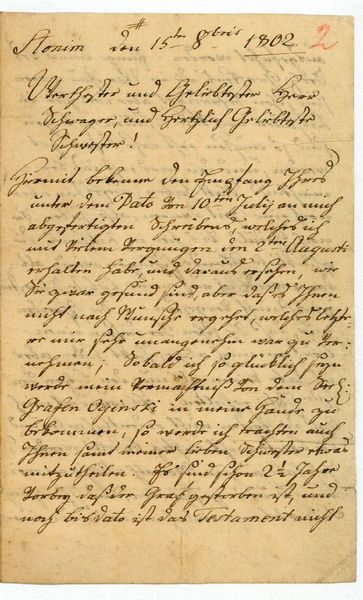 Slonim den 15ten 8bris 1802. 2
Werthester und Geliebtester Herr
Schwager, und Hertzlich Geliebteste
Schwester!
Hiermit bekenne den Empfang Ihres
unter dem Dato von 10ten Julij an mich
abgefertigten Schreibens, welches ich
mit vielem Vergnügen den 2ten Augusti
erhalten habe, und daraus ersehen, wie
Sie zwar gesund sind, aber daß es Ihnen
nicht nach Wunsche ergehet, welches letzte-
re mir sehr unangenehm war zu ver-
nehmen; Sobald ich so glücklich seyn
werde mein Vermächtniß von dem Seel:
Grafen Oginski in meine Hände zu
bekommen, so werde ich trachten auch
Ihnen samt meiner lieben Schwester etwas
mitzutheilen. Es sind schon 2½ Jahre
vorbey daß der Graf gestorben ist, und
noch bis dato ist das Testament nicht